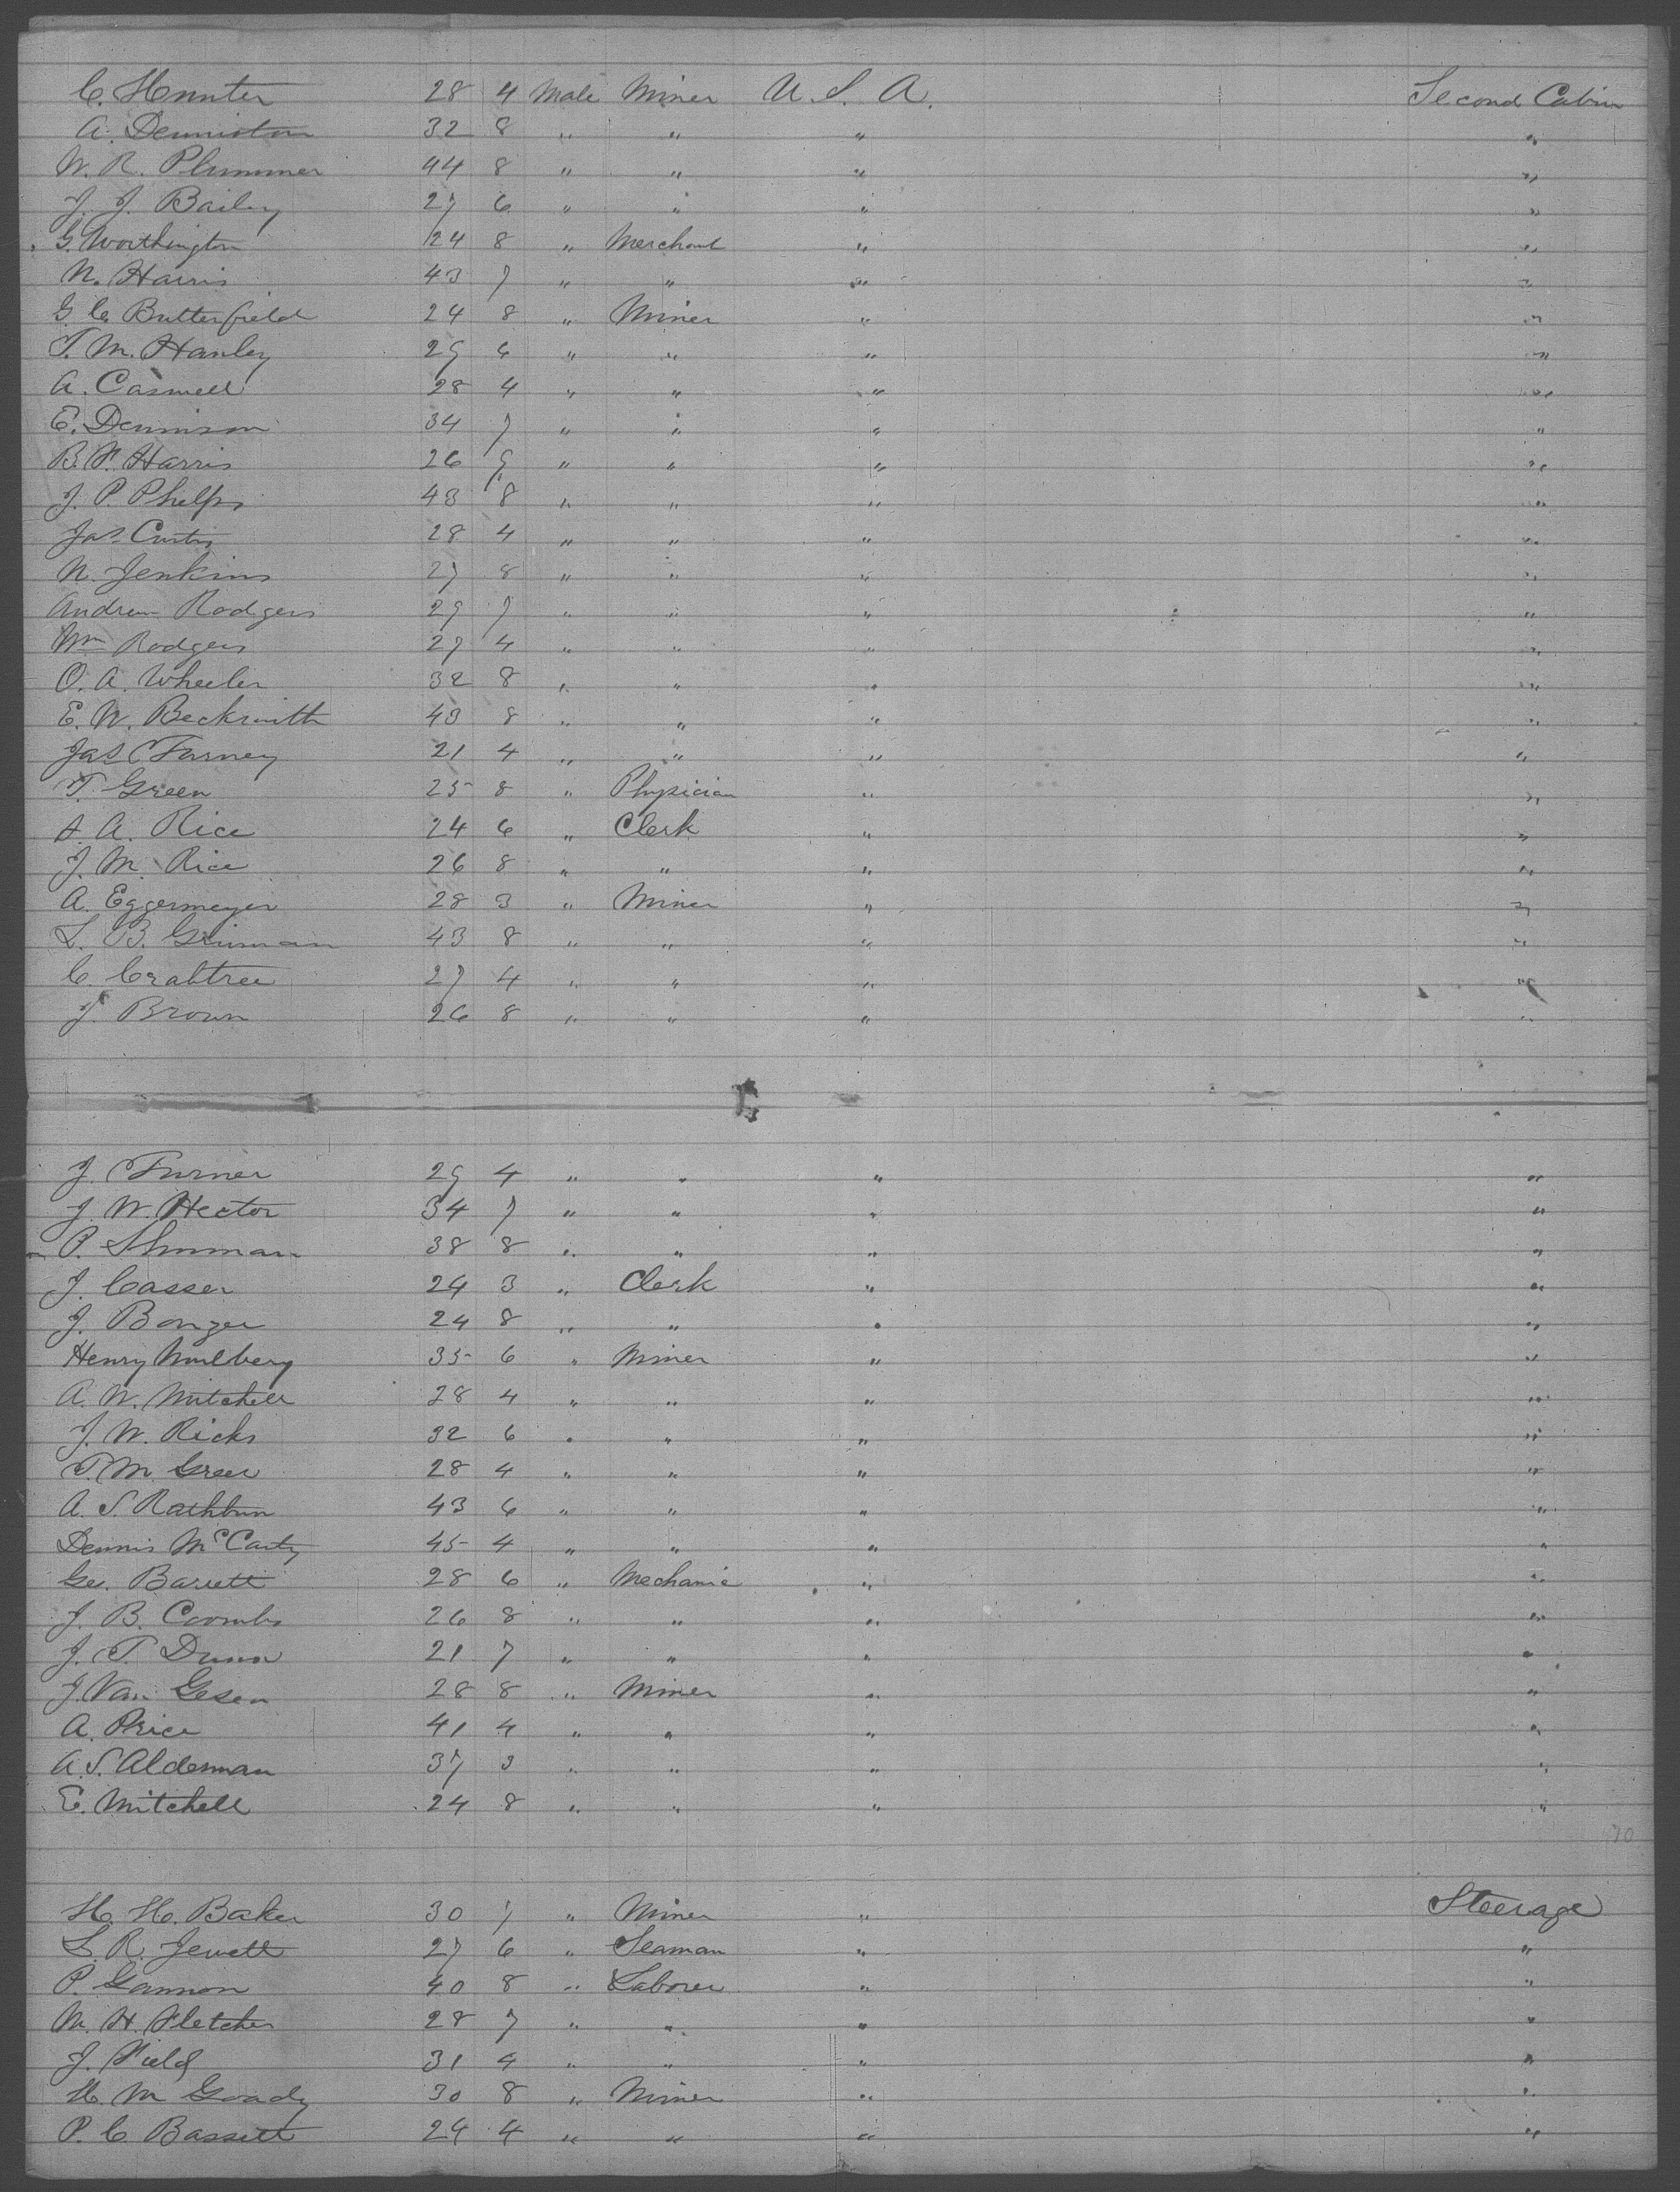 C. Hunter 28 4 Male Miner U. S. A. Second Cabin
A. Denniston 32 8 " " " "
W. R. Plummer 44 8 " " " "
J. J. Bailey 27 6 " " " "
G. Worthington 24 8 " Merchant " "
N. Harris 43 7 " " " "
G. C. Butterfield 24 8 " Miner " "
T. M. Hanley 29 6 " " " "
A. Caswell 28 4 " " " "
E. Dennison 34 7 " " " "
B. F. Harris 26 9 " " " "
J. P. Phelps 43 8 " " " "
Jas Curtis 28 4 " " " "
N. Jenkins 27 8 " " " "
Andrew Rodgers 29 7 " " " "
Wm Rodgers 27 4 " " " "
O. A. Wheeler 32 8 " " " "
E. W. Beckwith 43 8 " " " "
Jas Farney 21 4 " " " "
T. Green 25 8 " Physician " "
A. Rice 24 6 " Clerk " "
J. M. Rice 26 8 " " " "
A. Eggermeyer 28 3 " Miner " "
L. B. 43 8 " " " "
C. Crabtree 27 4 " " " "
J. Brown 26 8 " " " "
J. Turner 29 4 " " " "
J. W. Hector 34 7 " " " "
P. Shuman 38 8 " " " "
J. Casser 24 3 " Clerk " "
J. Bonger 24 8 " " " "
Henry Mulberg 35 6 " Miner " "
A. W. Mitchell 28 4 " " " "
J. W. Ricks 32 6 " " " "
T. M. Greer 28 4 " " " "
A. S. Rathbun 43 6 " " " "
Dennis McCarty 45 4 " " " "
Geo. Barrett 28 6 " Mechanic " "
J. B. Coombs 26 8 " " " "
J. T. Dunn 21 7 " " " "
J. Van Gesen 28 8 " Miner " "
A. Price 41 4 " " " "
A. S. Alderman 37 3 " " " "
E. Mitchell 24 8 " " " "
70
H. H. Baker 30 7 " Miner " Steerage
L. R. Jewett 27 6 " Seaman " "
P. Gannon 40 8 " Laborer " "
M. H. Fletcher 28 7 " " " "
J. Field 31 4 " " " "
H. M. Goady 30 8 " Miner " "
P. C. Bassett 24 4 " " " "